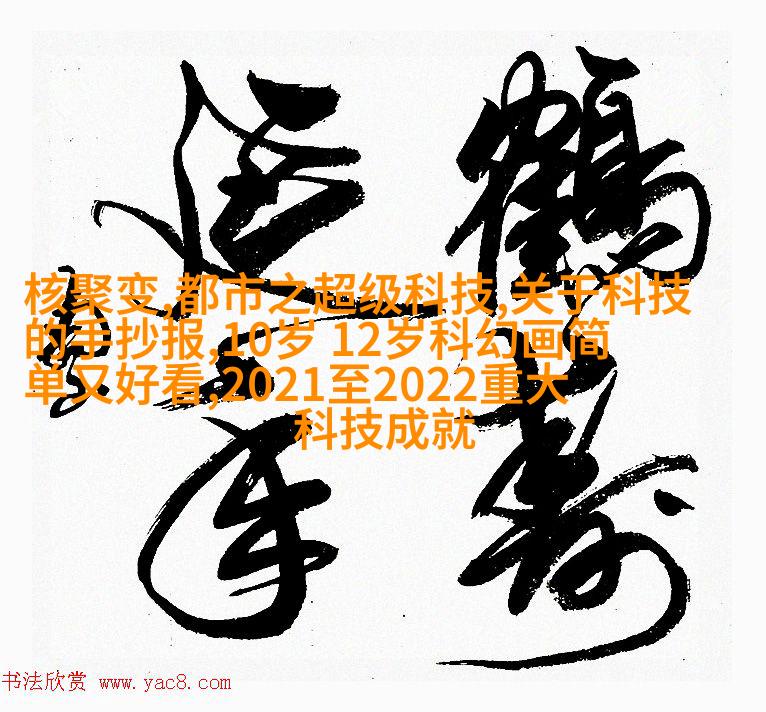 鹤寿
延年
核聚变,都市之超级科技,关于科技
的手抄报,10岁 12岁科幻画简
单又好看,2021至2022重大
科技成就
书法欣赏 www.yac8.com